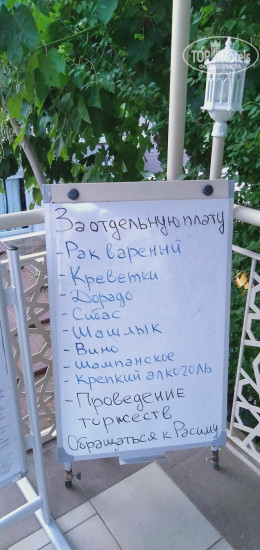 За отдельную плату
- Рак варений
- Креветки
- Дорадо
- Сибас
- Шашлык
- Вино
- Шампанское
- Крепкий алкоголь
- Проведение
торжеств
Обращаться к Расиму